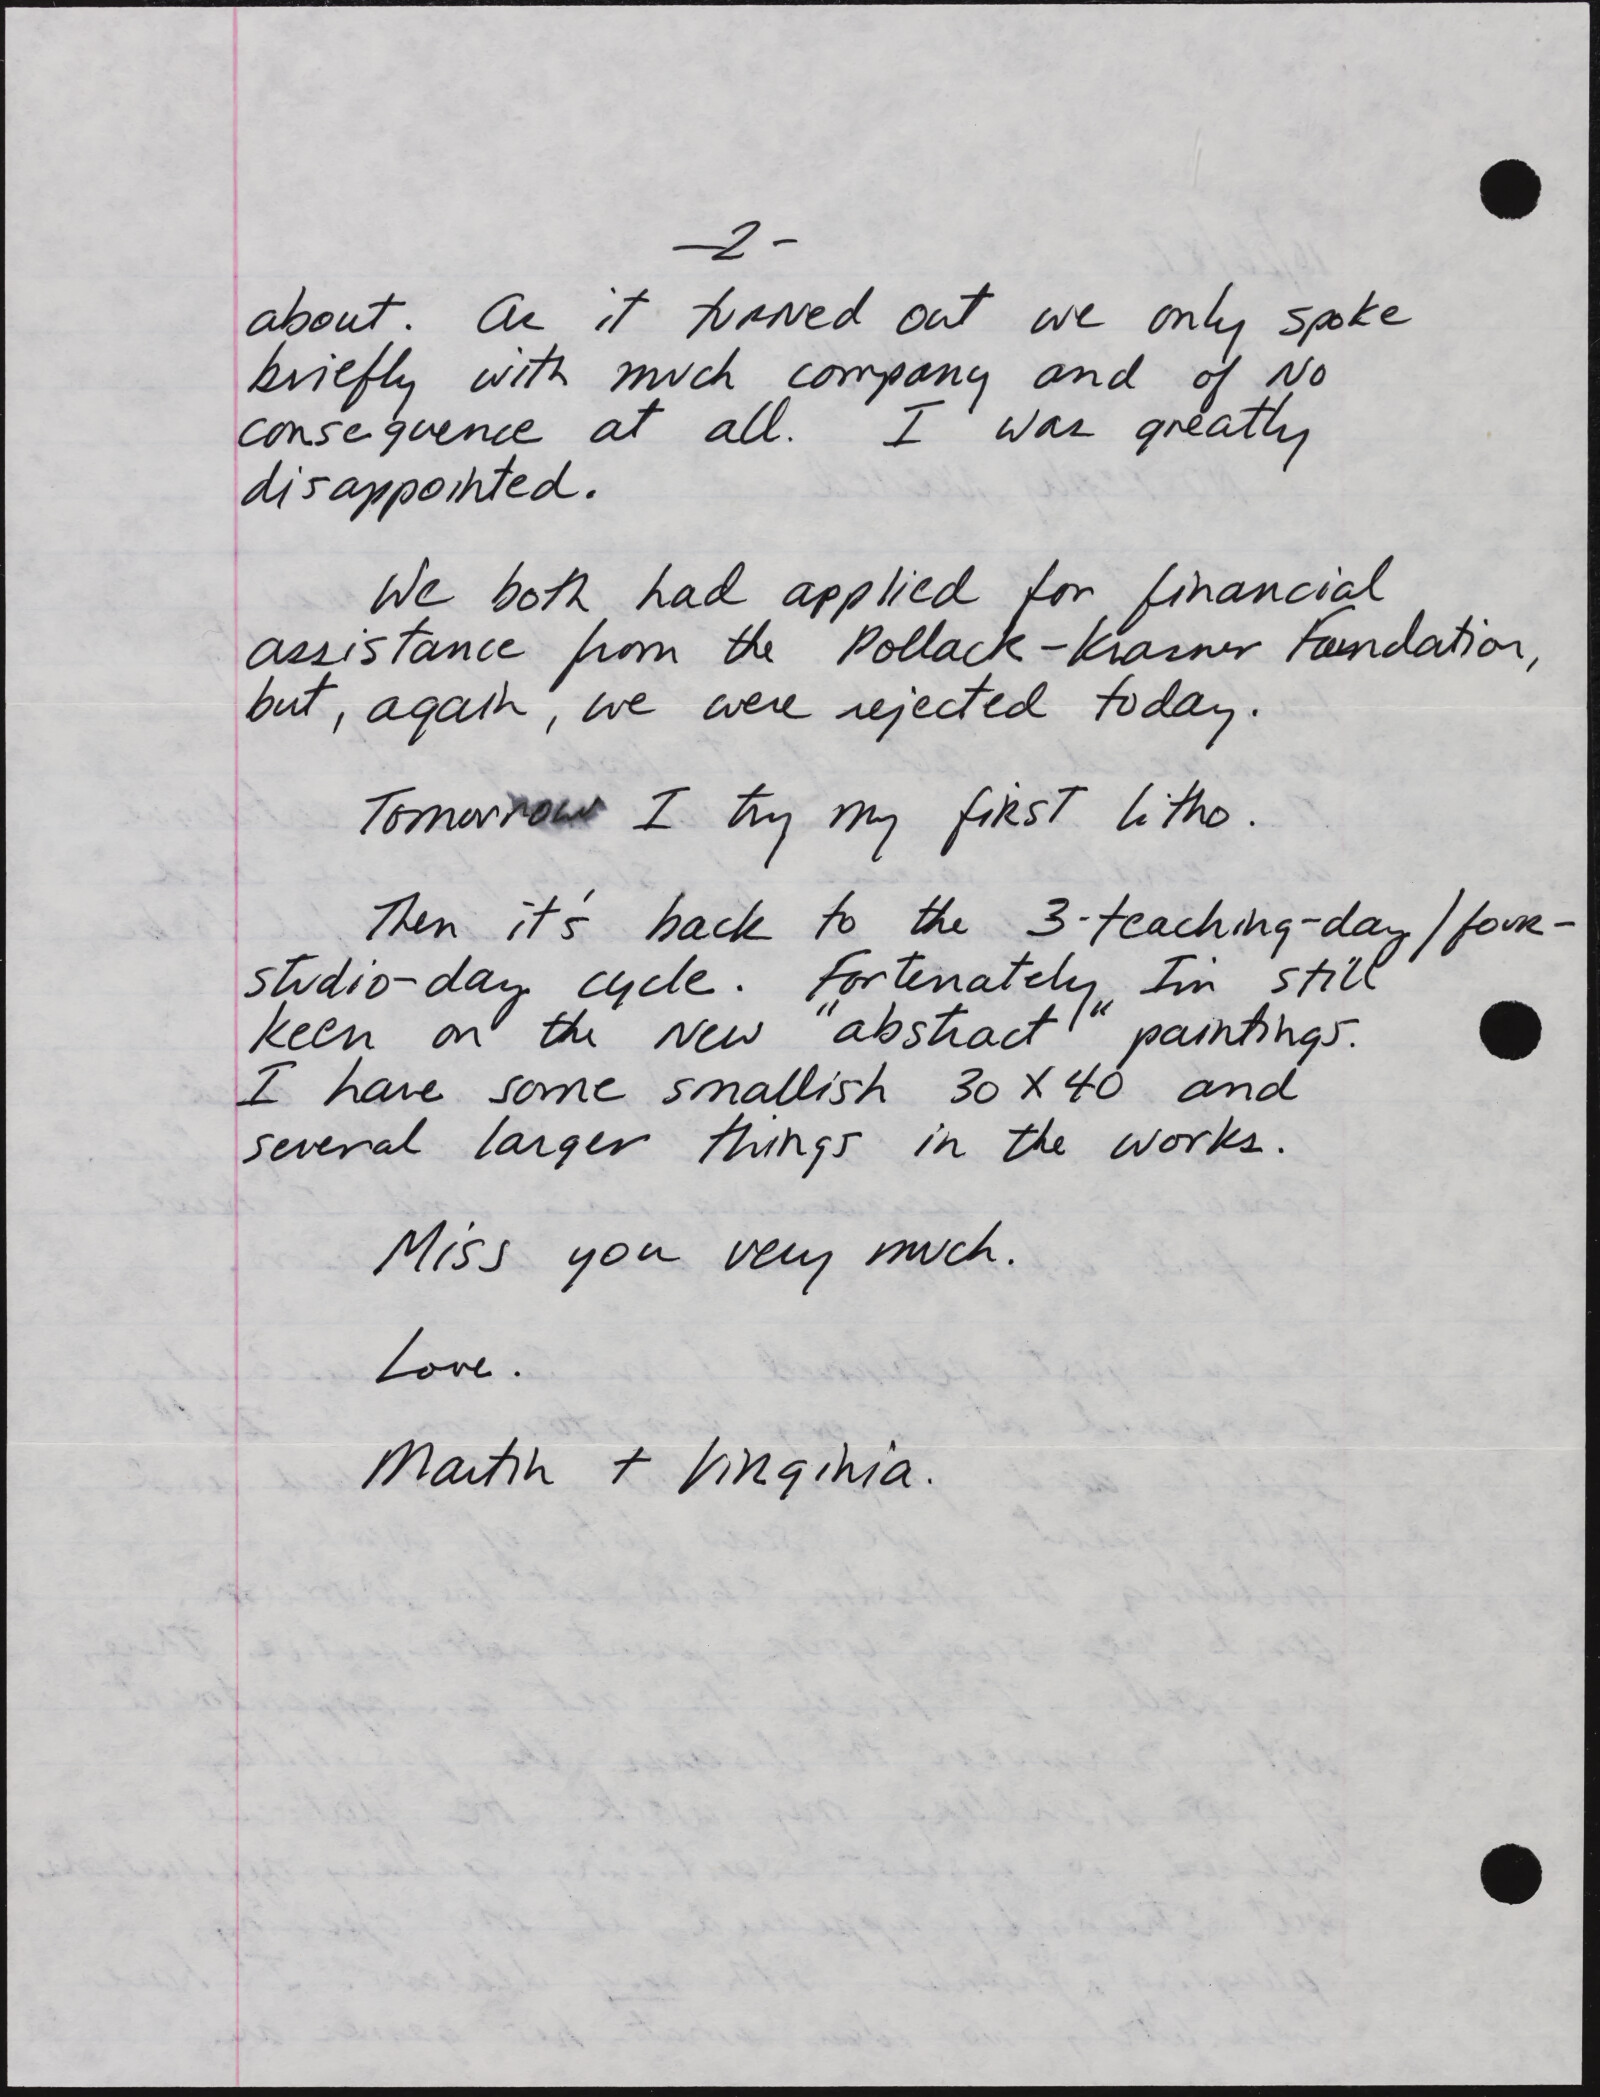 -2-
about. As it turned out we only spoke
briefly with much company and of no
consequence at all. I was greatly
disappointed.
We both had applied for financial
assistance from the Pollack-Krasner Foundation,
but, again, we were rejected today.
Tomorrow I try my first litho.
Then it's back to the 3-teaching-day/four-
studio-day cycle. Fortenately I'm still
keen on the new "abstract" paintings.
I have some smallish 30 X 40 and
several larger things in the works.
Miss you very much.
Love.
Martin + Virginia.